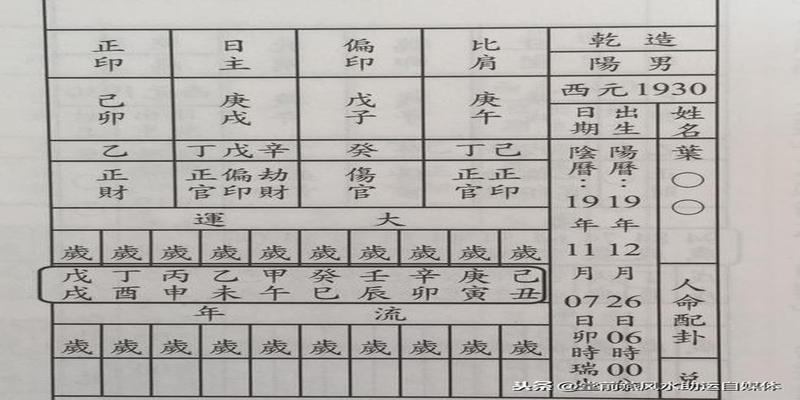 乾造
陽男
西元1930
姓名
葉○○
人命配卦
兌
出生日期
陽曆：1912年12月26日06時00
陰曆：1911年11月07日卯時瑞
比肩
庚午
丁己
正官 正印
偏印
戊子
癸
傷官
日主
庚戌
丁戊辛
正官 偏印 劫財
正印
己卯
乙
正財
大運
歲歲歲歲歲歲歲歲歲歲
己丑
庚寅
辛卯
壬辰
癸巳
甲午
乙未
丙申
丁酉
戊戌
流年
歲歲歲歲歲歲歲歲歲歲
头条
风水助运自媒体